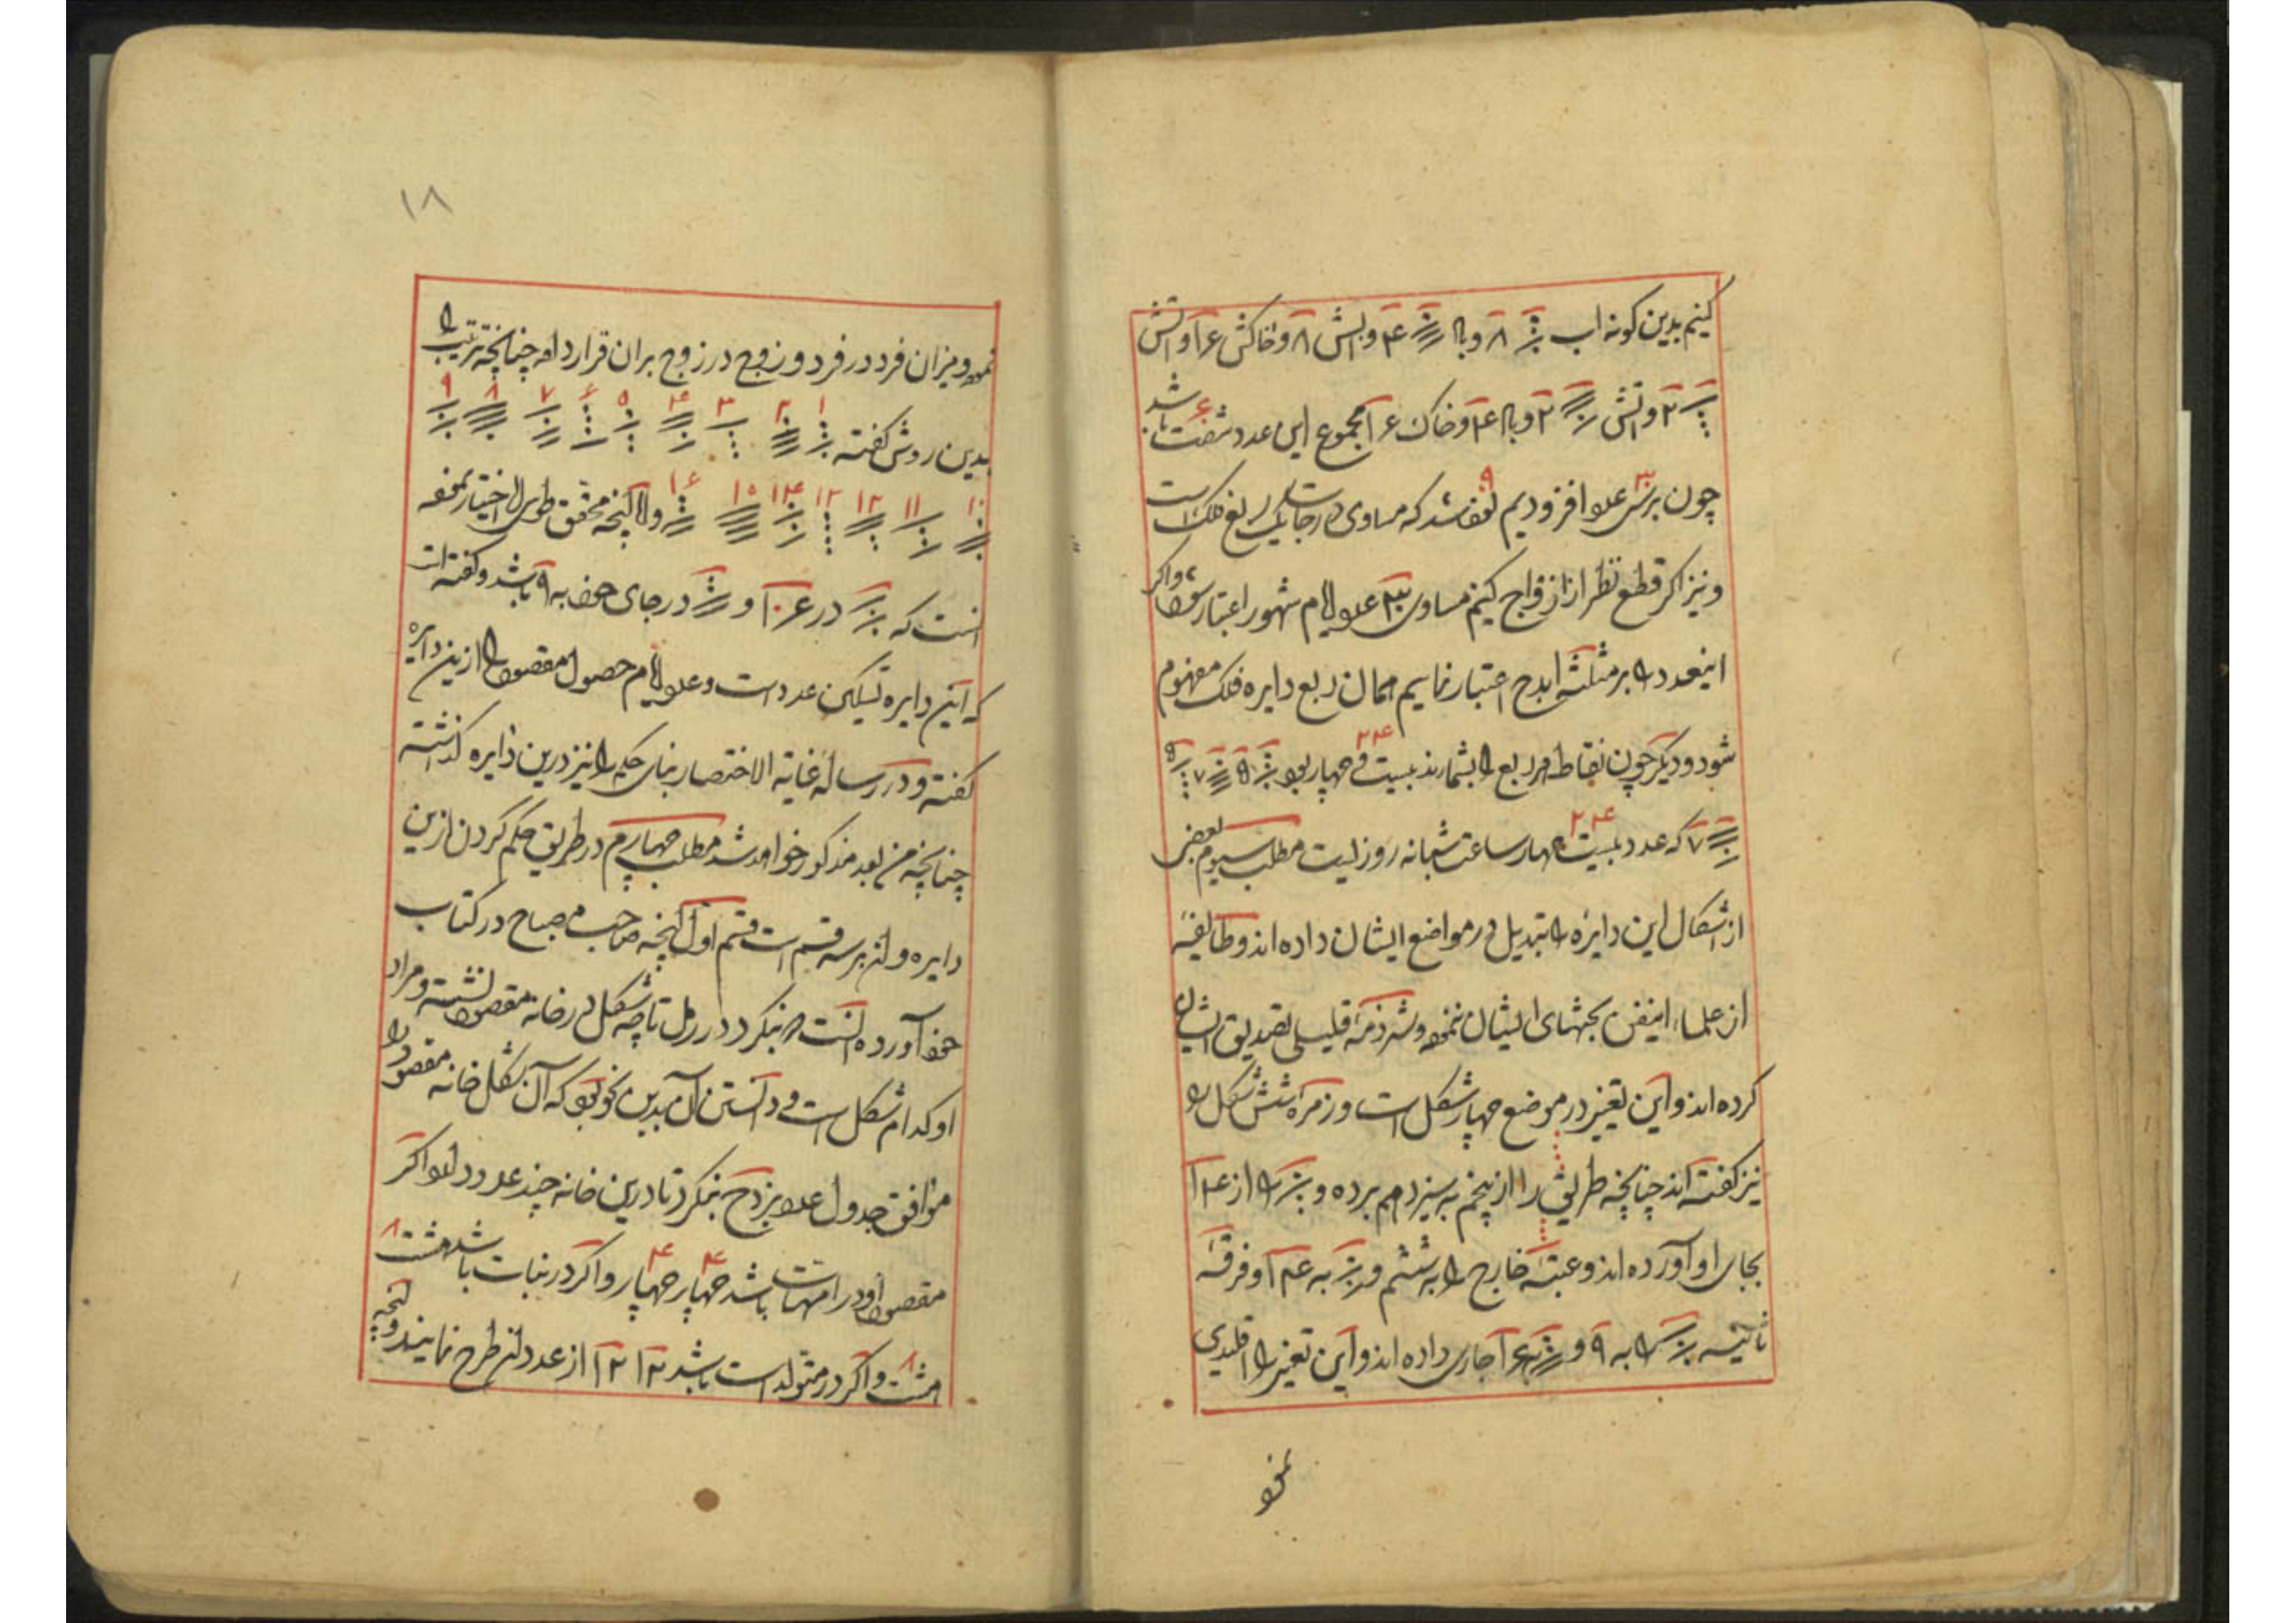 کنیم بدین کونه اب ۸ و باد ۴ و ابش ۸ و خاکش ۱۶ و اتش
۲ و اتش ۲ و باد ۴ و خاک ۱۶ مجموع این عدد شصت باشد
چون برسی عدد افزودیم نود شد که مساوی درجات یک ربع فلک است
و نیز اکر قطع نظر از ازواج کنیم مساوی عدد ایام شهور اعتبار شود و اکر
اینعدد را بر مثلثه ابدح اعتبار نماییم همان ربع دایره فلک مفهوم
شود و دیکر چون نقاط هر ربع را بشمارند بیست و چهار بود ۲۴ ۵ ۷ ۵
۷ که عدد بیست و چهار ۲۴ ساعت شبانه روزیست مطلب سیوم بعضی
از اشکال این دایره را تبدیل در مواضع ایشان داده اند و طایفه
از علماء اینفن بحثهای ایشان نموده و شرذمه قلیلی تصدیق ایشان
کرده اند و این تغییر در موضع چهار شکل است و زمره شش شکل را
نیز کفته اند چنانچه طریق را از پنجم به سیزدهم برده و را از ۱۴
بجای او آورده اند و عتبه خارج را به ششم و به ۱۴ و فرقه
ثانیه را به ۹ و به ۱۶ جاری داده اند و این تغییر را اقلیدی
نموده
۱۸
نموده و میزان فرد در فرد و زوج در زوج بران قرار داده چنانچه ترتیب را
بدین روش کفته ۱ ۲ ۳ ۴ ۵ ۶ ۷ ۸ ۹
۱۰ ۱۱ ۱۲ ۱۳ ۱۴ ۱۵ ۱۶ و اما آنچه محقق طوسی اختیار نموده
انست که در ۱۶ ۱۰ و در جای خود به ۹ باشد و کفته است
که این دایره تسکین عدد است و عدد ایام حصول مقصود را ازین دایره
کفته و در رساله غایة الاختصار بنای حکم را نیز درین دایره کذاشته
چنانچه من بعد مذکور خواهد شد مطلب چهارم در طریق حکم کردن ازین
دایره و ان بر سه قسم است قسم اول آنچه صاحب مصباح در کتاب
خود آورده انست که بنکرد در رمل تا چه شکل در خانه مقصود نشسته و مراد
او کدام شکل است و دانستن آن بدین نحو بود که آن شکل خانه مقصود را
موافق جدول عدد بزدح بنکرد تا درین خانه چند عدد دارد و اکر
مقصود او در امهات باشد چهار ۴ چهار ۴ و اکر در بنات باشد هشت ۸
هشت ۸ و اکر در متولدات باشد ۱۲ ۱۲ از عدد ان طرح نمایند و آنچه